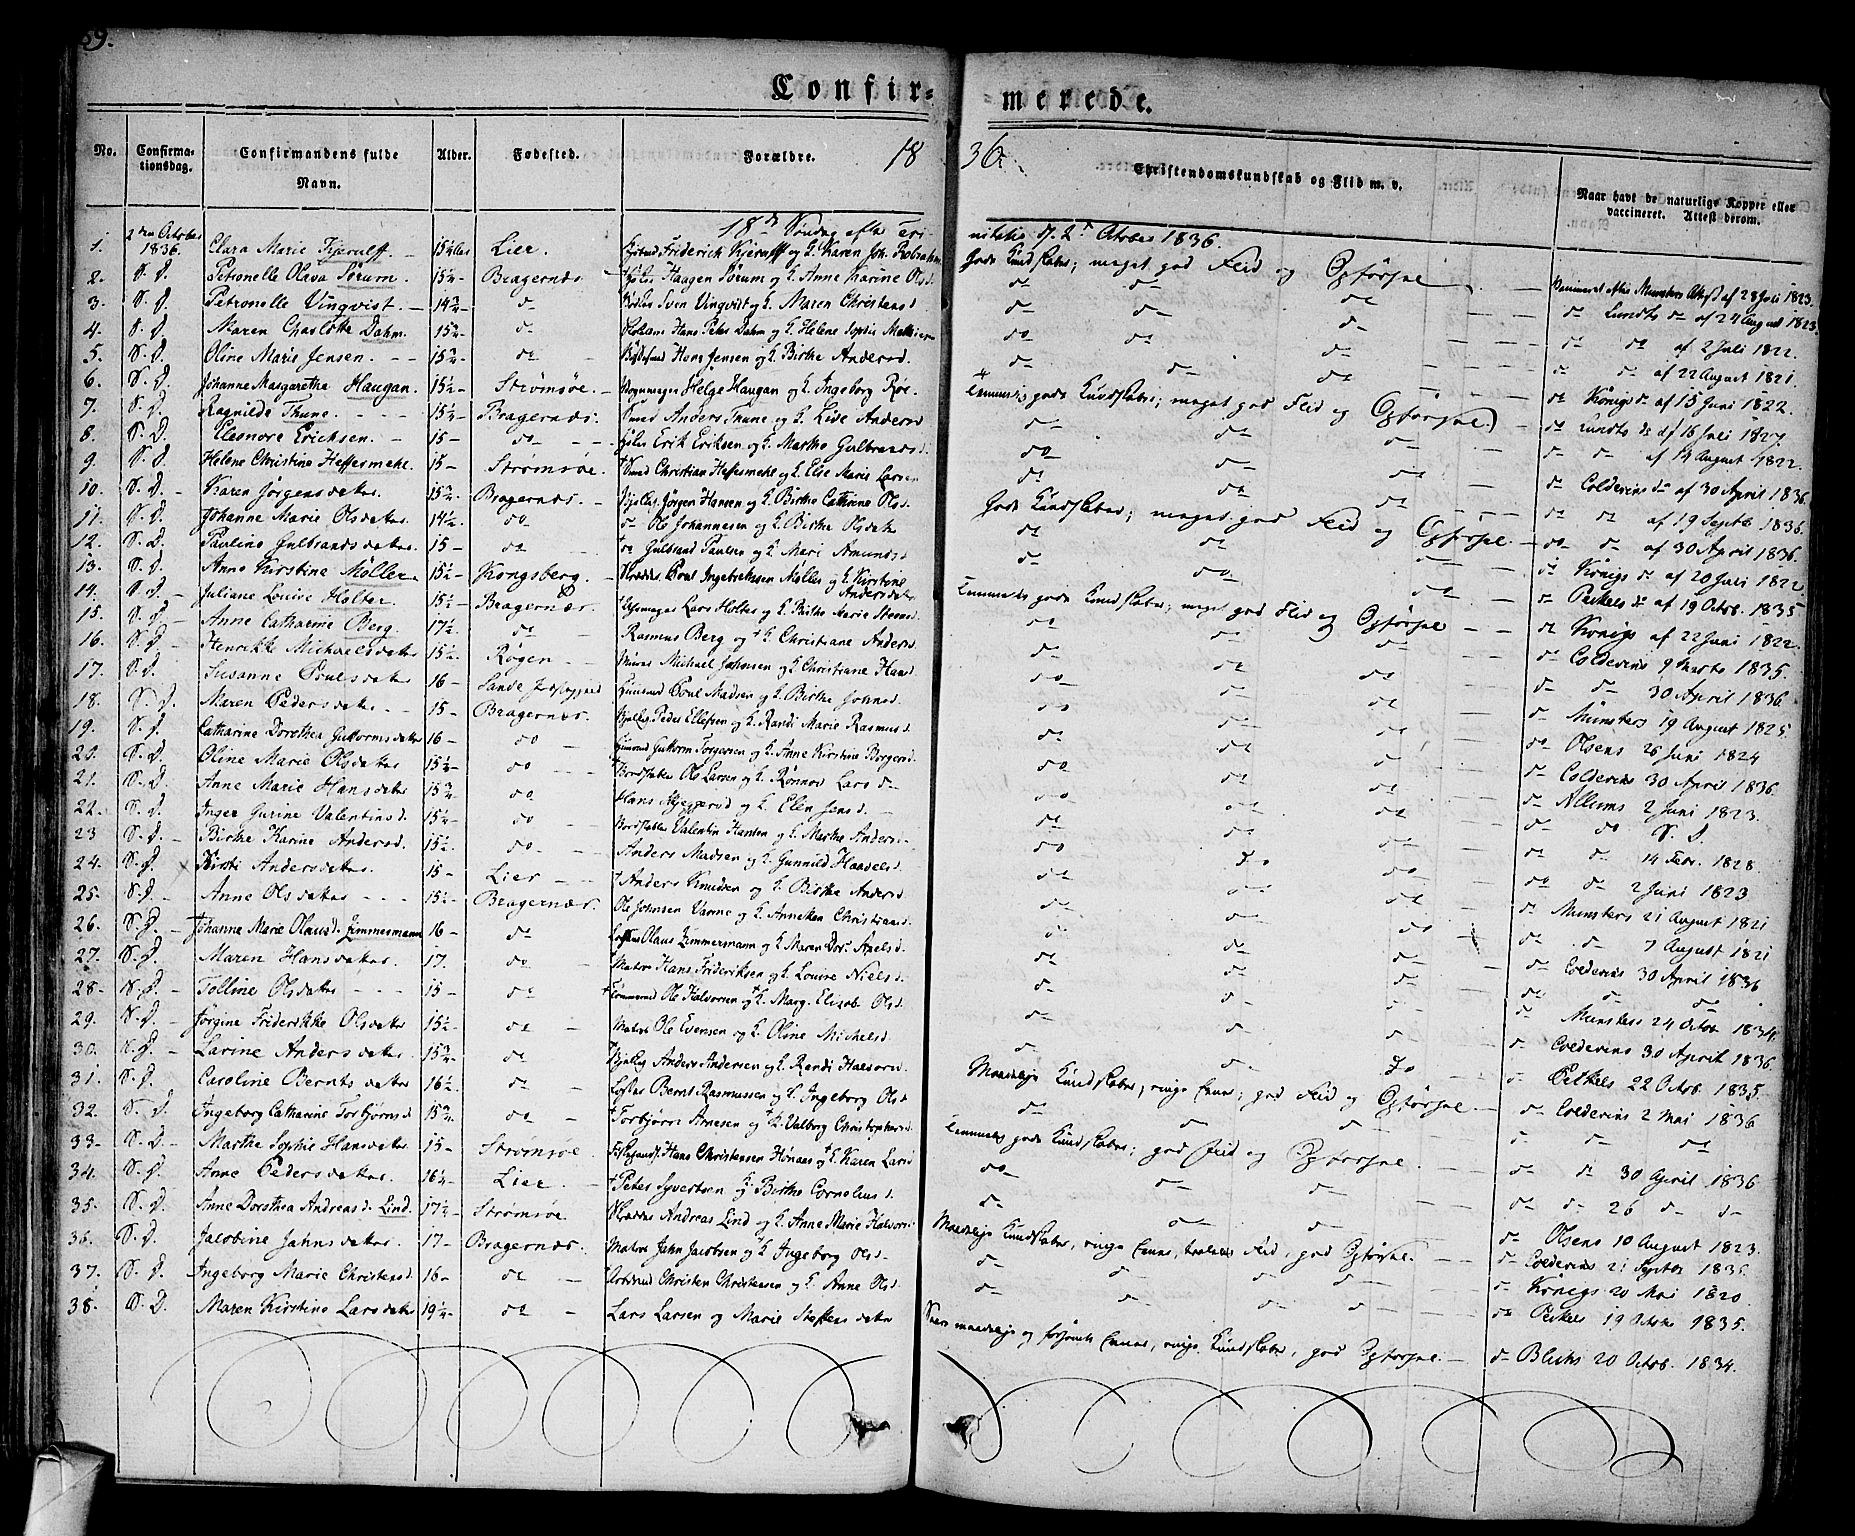 59.
Confir=
=merede.
No. Confirmationsdag. Confirmandens fulde Navn. Alder. Fødested. Forældre. 18
36. Christendomskundskab og Flid m. v. Naar havt de naturlige Kopper eller vaccineret. Attest derom.
18de Søndag efter Tri-
nitatis d. 2d October 1836.
1. 2den October 1836. Clara Marie Kjerulff 15 Lier. Friderich Kjerulff og H. Karen Joh.
2. S. D. Petronelle Olava Sørum 15½ Bragernæs Haagen Sørum og H. Anne Karine Olsd.
3. S. D. Petronelle Vingvist 14¾ do Sven Vingvist og H. Maren Christensd
4. S. D. Maren Charlotte Dahm. 15¾ do Hans Peter Dahm og H. Helene Sophie
5. S. D. Oline Marie Jensen. 15¾ do Hans Jensen og H. Birthe Andersd.
6. S. D. Johanne Margarethe Haugan. 15½ Strømsøe. Vognmager Helge Haugan og H. Ingeborg Roe.
7. S. D. Ragnilde Thune. 15¾ Bragernæs. Smed Anders Thune og H. Lide Andersd
8. S. D. Eleonore Erichsen. 15 do Erik Eriksen og H. Marthe Gulbrandsd
9. S. D. Helene Christine Heffermehl. 15 Strømsøe. Smed Christian Heffermehl og H. Else Marie Larsen
10. S. D. Karen Jørgensdatter. 15¾ Bragernæs. Jørgen Hansen og H. Birthe Cathrine Olsd.
11. S. D. Johanne Marie Olsdatter 14½ do do Ole Johannesen og H. Birthe Olsdatter
12. S. D. Pauline Gulbrandsdatter. 15 do do Gulbrand Paulsen og H. Mari Amundsd
13. S. D. Anne Kirstine Møller. 15½ Kongsberg. Poul Ingebretsen Møller og H. Kirstine Andersdatter
14. S. D. Juliane Louise Holter. 15½ Bragernæs. Lars Holter og H. Birthe Marie
15. S. D. Anne Catharine Berg. 17½ do Rasmus Berg og H. Christiane Andersd
16. S. D. Henrikke Michaelsdatter 15½ Røgen Michael Johnsen og H. Christiane Hansd
17. S. D. Susanne Poulsdatter 16 Sande Poul Madsen og H. Birthe Johnsd.
18. S. D. Maren Pedersdatter 15 Bragernæs. Peder Ellefsen og H. Randi Marie Rasmusd.
19. S. D. Catharine Dorothea Guttormsdatter 16 do Guttorm Torgersen og H. Anne Kirstine Borgersd.
20. S. D. Oline Marie Olsdatter 15½ do Ole Larsen og H. Rønnov Larsd
21. S. D. Anne Marie Hansdatter 15¾ do Hans Skjeggerud og H. Elen Jensd.
22. S. D. Inger Gurine Valentinsd. 15½ do Valentin Hansen og H. Marthe Anders
23 S. D. Birthe Karine Andersd. 15½ do Anders Madsen og H. Gunnild Haavelsd.
24. S. D. Kirsti Andersdatter. 15 Lier Anders Knudsen og H. Birthe Andersd
25. S. D. Anne Olsdatter 15½ Bragernæs. Ole Johnsen Varme og H. Anneken Christiansd.
26. S. D. Johanne Marie Olausd. Zimmermann 16 do Olaus Zimmermann og H. Maren Dor. Axelsd.
27. S. D. Maren Hansdatter 17. do Matros Hans Frideriksen og H. Louise Nielsd.
28. S. D. Tolline Olsdatter 15 do Ole Halvorsen H. Marg. Elisab. Olsd.
29. S. D. Jørgine Friderikke Olsdatter 15½ do Matros Ole Evensen og H. Oline Michelsd
30. S. D. Larine Andersdatter. 15¾ do Anders Andersen og H. Randi Halvorsd.
31. S. D. Caroline Berntsdatter 16½ do Bernt Rasmussen og H. Ingeborg Olsd
32. S. D. Ingeborg Catharine Torbjørnsd 15¾ do Torbjørn Arnesen H. Valborg Christophersd.
33. S. D. Marthe Sophie Hansdatter 15 Strømsøe. Hans Christensen H. Karen Larsd
34. S. D. Anne Pedersdatter. 16¼ Lier. Peter Syvertsen H. Birthe Corneliusd.
35. S. D. Anne Dorothea Andreasd. Lind. 17½ Strømsøe Andreas Lind og H. Anne Marie Halvors
36. S. D. Jacobine Jahnsdatter. 17 Bragernæs. Matros Jahn Jacobsen og H. Ingeborg Olsd
37. S. D. Ingeborg Marie Christensd. 16 do Christen Christensen og H. Anne Olsd
38. S. D. Maren Kirstine Larsdatter 19½ do Lars Larsen og Marie Steffensdatter
Gode Kundskaber; meget god Flid og Opførsel
do do do Vaccineret efter Munsters Attest af 28 Juli 1823.
do do do do Lundts do af 24 August 1823.
do do do do do af 2 Juli 1822.
do do do do do af 22 August 1821.
Temmelig gode Kundskaber; meget god Flid og Opførsel. do Königs do af 15 Juni 1822.
do do do do Lundts do af 16 Juli 1827.
do do do do do af 14 August 1822.
do do do do Colderins do af 30 April 1836.
Gode Kundskaber; meget god Flid og Opførsel do do af 19 Septb 1836.
do do do do do af 30 April 1836.
do do do do Königs do af 20 Juli 1822
Temmelig gode Kundskaber; meget god Flid og Opførsel do Peckels do af 19 Octob. 1835
do do do do Königs af 22 Juni 1822.
do do do do Colderins 9 Marts 1835.
do do do do do 30 April 1836
do do do do Munsters 19 August 1825.
do do do do Olsens 26 Juni 1824
do do do do Colderins 30 April 1836.
do do do do Allums 2 Juni 1823.
do do do do do S. D.
do do do do do 14 Febr. 1828.
do do do do do 2 Juni 1823
do do do do Munsters 21 August 1821
do do do do do 7 August 1821
do do do do Colderins 30 April 1836
do do do do do do
do do do do Munsters 24 Octob 1834.
do do do do Colderins 30 April 1836.
Maadelige Kundskaber; ringe Evner; god Flid og Opførsel. do Peckels 22 Octob. 1835.
do do do do Colderins 2 Mai 1836
Temmelig gode Kundskaber; god Flid og Opførsel. do do do
do do do do do 30 April 1836
do do do do do 26 do do
Maadelige Kundskaber, ringe Evner, god Opførsel. do Olsens 10 August 1823.
do do do do Colderins 21 Septbr 1835.
do do do do Königs 20 Mai 1820.
do do do do Peckels 19 Octob 1835.
Evner, ringe Kundskaber, god Opførsel. do Blichs 20 Octob. 1834.